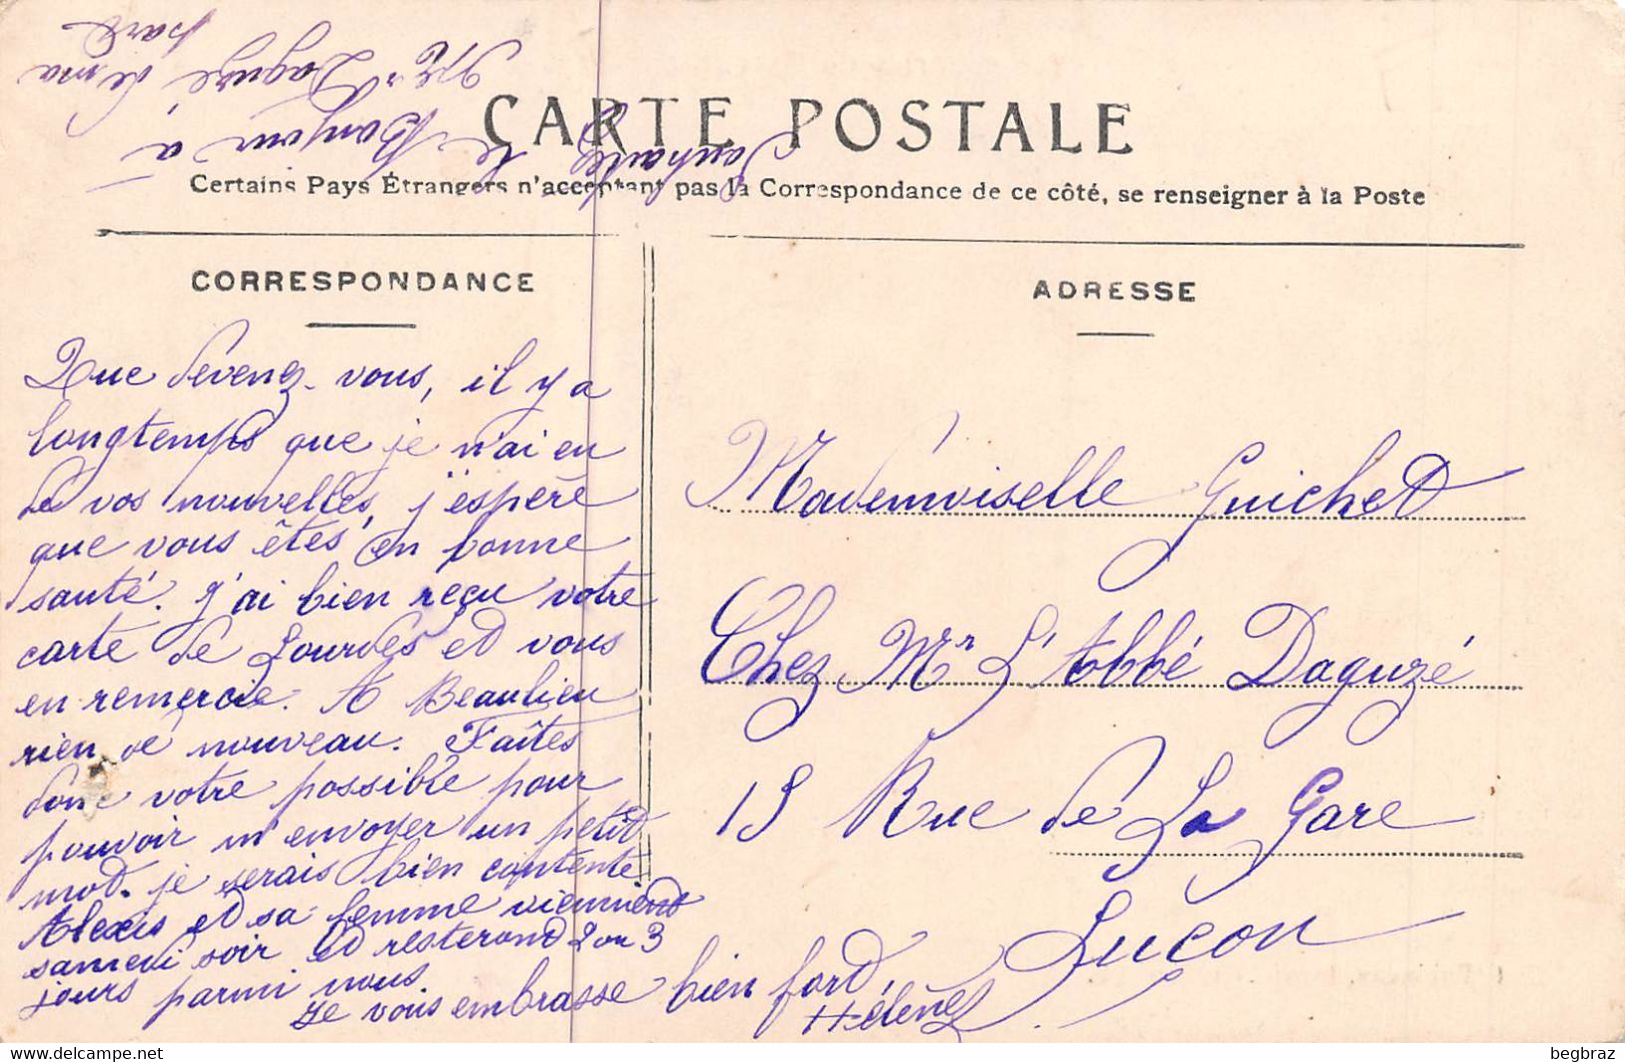 Souhaitez le Bonjour à
Mr Daguzé de ma
part
CARTE POSTALE
Certains Pays Étrangers n'acceptant pas la Correspondance de ce côté, se renseigner à la Poste
CORRESPONDANCE
Que devenez-vous, il y a
longtemps que je n'ai eu
de vos nouvelles, j'espère
que vous êtes en bonne
santé. J'ai bien reçu votre
carte de Lourdes et vous
en remercie. A Beaulieu
rien de nouveau. Faîtes
donc votre possible pour
pouvoir m'envoyer un petit
mot. je serais bien contente
Alexis et sa femme viennent
samedi soir et resteront 2 ou 3
jours parmi nous.
Je vous embrasse bien fort,
Hélène
ADRESSE
Mademoiselle Guichet
Chez Mr L'Abbé Daguzé
15 Rue de La Gare
Luçon
begbraz